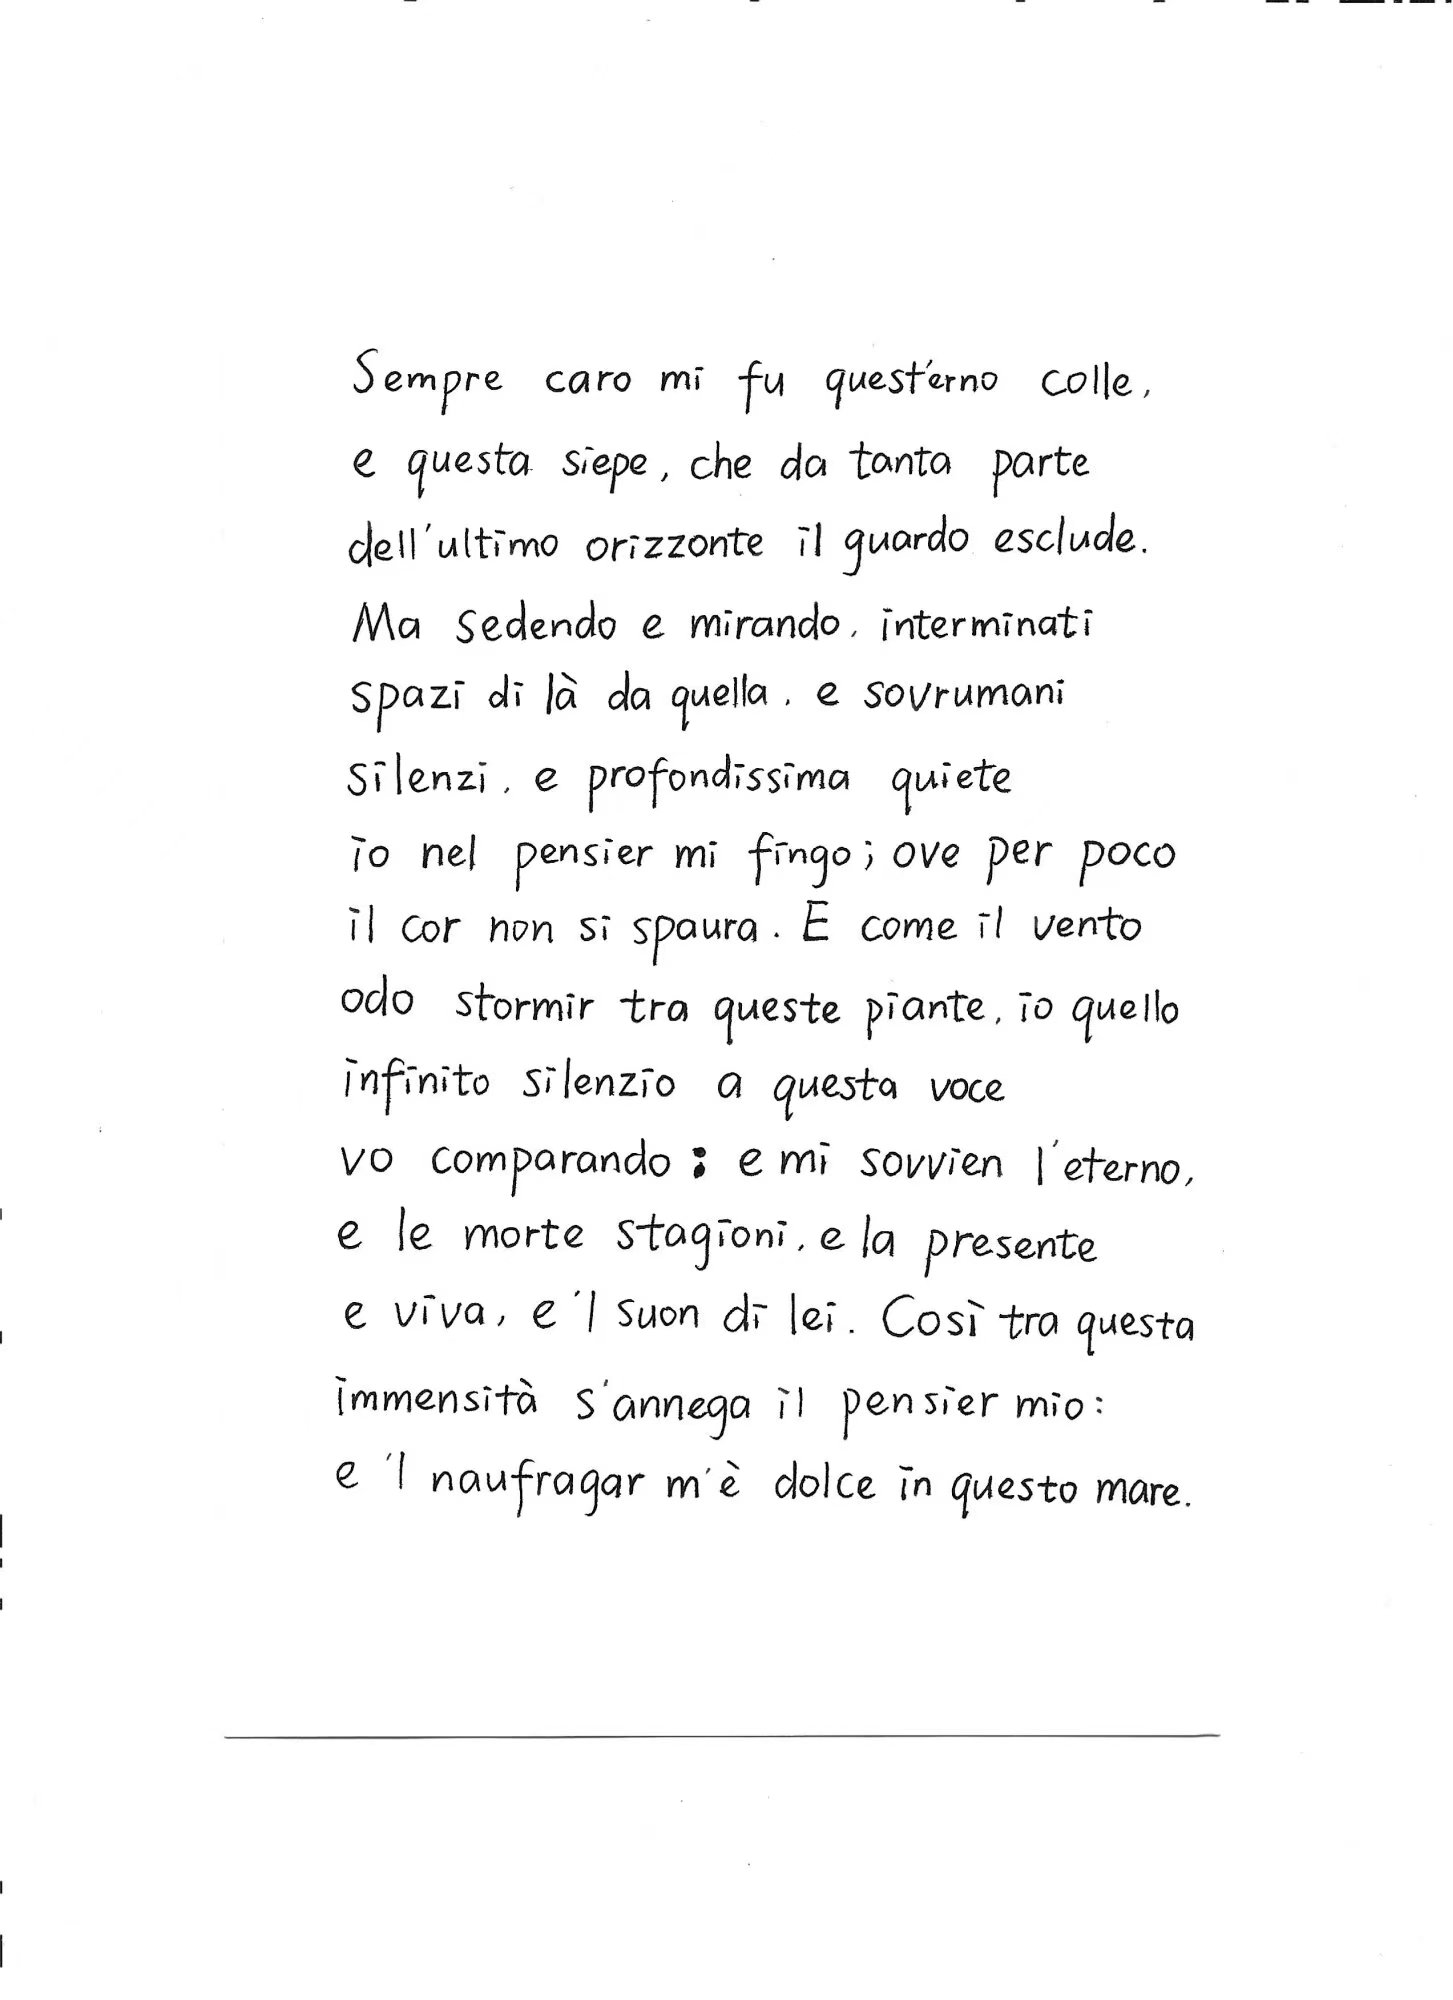 Sempre caro mi fu quest'erno colle,
e questa siepe, che da tanta parte
dell'ultimo orizzonte il guardo esclude.
Ma sedendo e mirando, interminati
spazi di là da quella, e sovrumani
silenzi, e profondissima quiete
io nel pensier mi fingo; ove per poco
il cor non si spaura. E come il vento
odo stormir tra queste piante, io quello
infinito silenzio a questa voce
vo comparando: e mi sovvien l'eterno,
e le morte stagioni, e la presente
e viva, e 'l suon di lei. Così tra questa
immensità s'annega il pensier mio:
e 'l naufragar m'è dolce in questo mare.